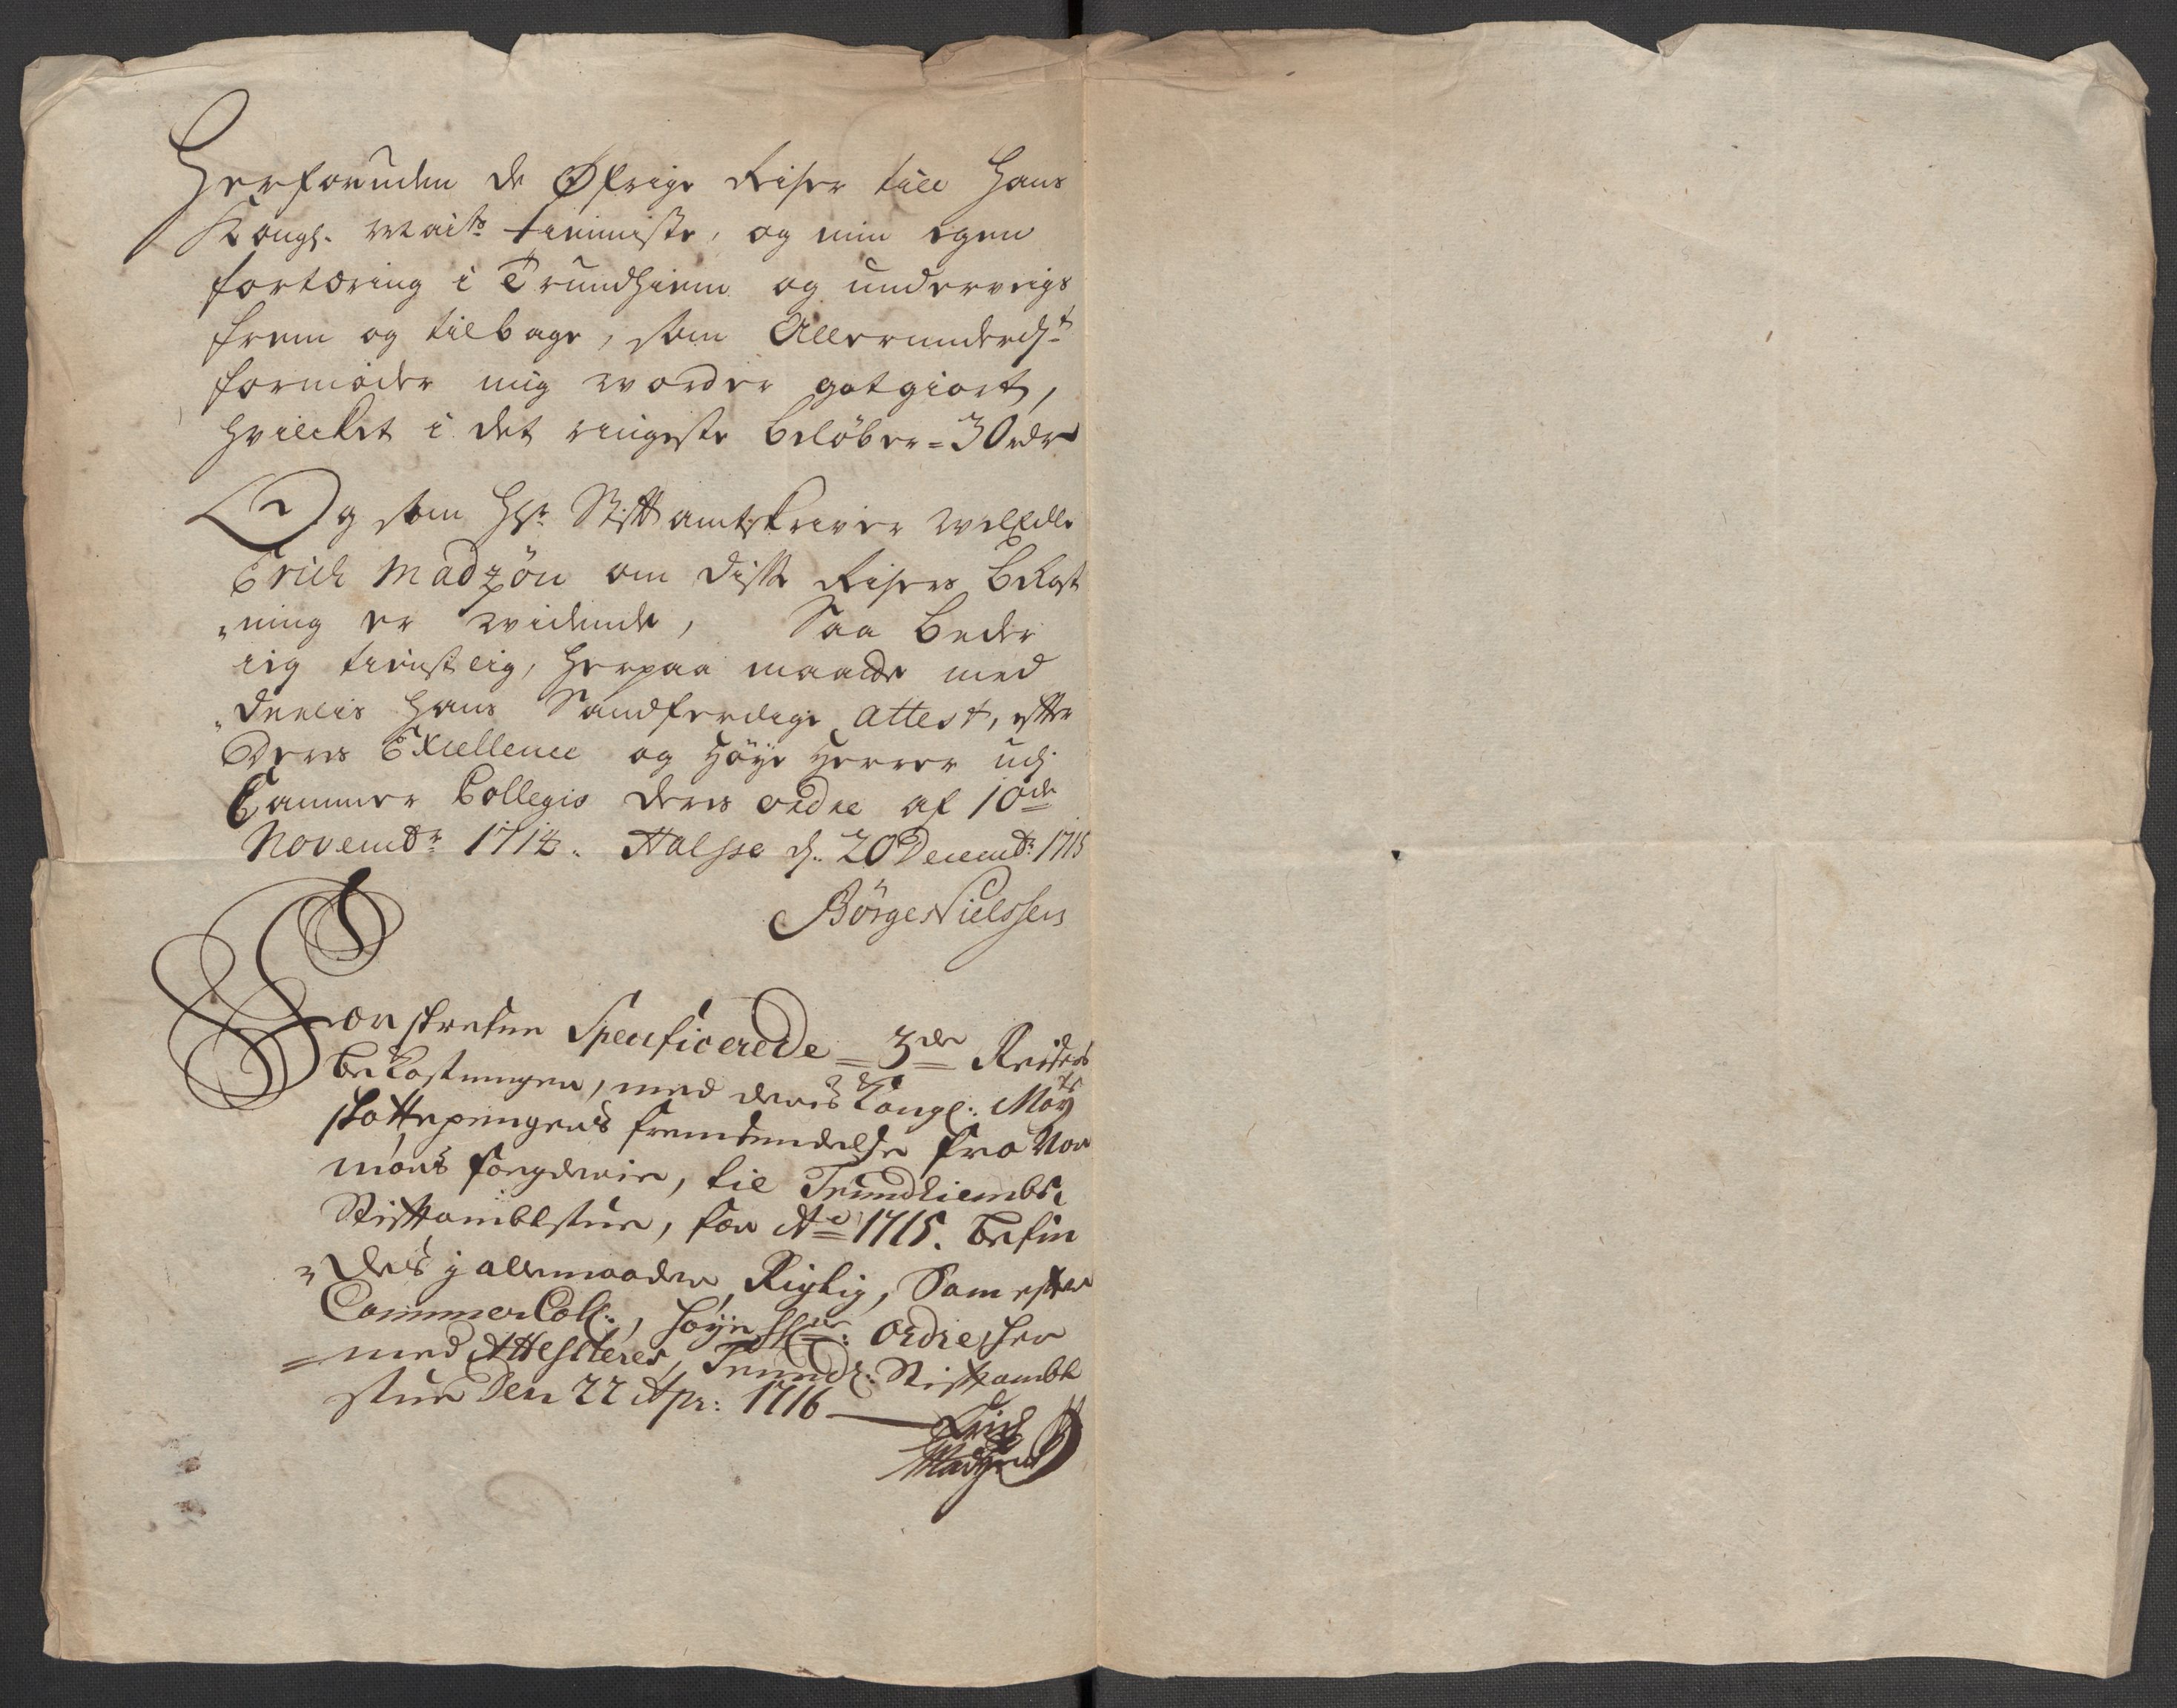 Herforuden de Øfrige Reiser till Hans
Kongl. Maits tienniste, og min egen
fortæring i Trundhiem og underveigs
frem og tilbage, som Allerunderdst
formoder mig worder gotgiort,
hvilcket i det ringeste beløber = 30 rdr
Og som Hr. Stiftamtskriver WelEdle
Erich Madzøn om disse Reisers bekost
"ning er widende, Saa beder
ieg tienstlig, herpaa maatte med
"deelis hans Sandferdige attest, efter
Deris Excellence og Høye Herrer udj
Cammer Collegio deris ordre af 10de
Novembr 1714. Halsse d. 20 Decembr 1715
Börge Nielssen
Forskrefne Specificerede = 3de Reisers
bekostninger, med deris Kongl: Mayts
skattepengers fremsendelse fra Nor
møers fogderie, til Trundhiembs
Stiftambtstue, for Ao 1715. befin
"des j allemaader Rigtig, Som efter
CammerColl:, høye Hrr: Ordre her
= med Attesteres, Trundh: Stiftambt
stue Den 22 Apr: 1716
Erich
Madzøn